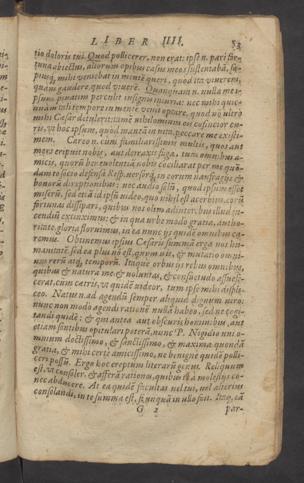 LIBER IIII. 53
tio doloris tui. Quod pollicerer, non erat: ipse n. pari for-
tuna abiectus, aliorum opibus casus meos sustentabā, sæ-
piusq; mihi veniebat in mentē queri, quod ita viverem,
quàm gaudere, quod viverē. Quanquam n. nulla me i-
psum privatim perculit insignis iniuria: nec mihi quic-
quam tali tempore in mentē venit optare, quod nō ultrò
mihi Cæsar detulerit: tamē nihilominus eis conficior cu-
ris, vt hoc ipsum, quod maneā in vita, peccare me existi-
mem. Careo n. cum familiarissimis multis, quos aut
mors eripuit nobis, aut distraxit fuga: tum omnibus a-
micis, quorū benevolentiā nobis conciliarat per me quō-
dam te socio defensa Resp. versorq́; in eorum naufragiis &
bonorū direptionibus: nec audio solū, quod ipsum esset
miserū, sed etiā id ipsū video, quo nihil est acerbius, eorū
fortunas dissipari, quibus nos olim adiutoribus illud in-
cendiū extinximus: & in qua urbe modò gratia, auctho-
ritate, gloria floruimus, in ea nunc iis quidē omnibus ca-
remus. Obtinemus ipsius Cæsaris summā erga nos hu-
manitatē, sed ea plus nō est, quàm vis, & mutatio omni-
um rerū atq; temporū. Itaque orbus iis rebus omnibus,
quibus & natura me & voluntas, & consuetudo assuefe-
cerat, cum cæteris, vt quidē videor, tum ipse mihi displi-
ceo. Natus n. ad agendū semper aliquid dignum viro:
nunc non modò agendi rationē nullā habeo, sed ne cogi-
tandi quidē: & qui antea aut obscuris hominibus, aut
etiam sontibus opitulari poterā, nunc P. Nigidio uni o-
mnium doctissimo, & sanctissimo, & maxima quondā
gratia, & mihi certè amicissimo, ne benignè quidē polli-
ceri possū. Ergo hoc ereptum literarū genus. Reliquum
est, vt consoler, & afferā rationes, quibus te à molestiis co-
ner abducere. At ea quidē facultas vel tui, vel alterius
consolandi, in te summa est, si unquā in ullo fuit. Itaq; eā
G 2 par-